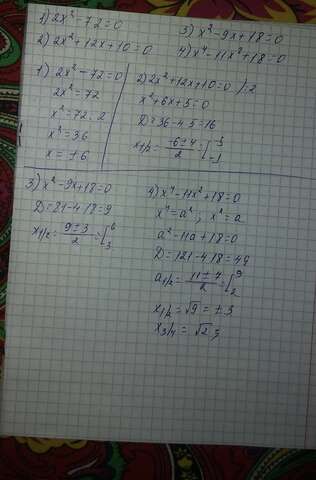 1) 2x² - 72 = 0
2) 2x² + 12x + 10 = 0
3) x² - 9x + 18 = 0
4) x⁴ - 11x² + 18 = 0
1) 2x² - 72 = 0
2x² = 72
x² = 72 : 2
x² = 36
x = ± 6
2) 2x² + 12x + 10 = 0 / : 2
x² + 6x + 5 = 0
D = 36 - 4·5 = 16
x1/2 = (-6 ± 4)/2 = [-5 -1
3) x² - 9x + 18 = 0
D = 81 - 4·18 = 9
x1/2 = (9 ± 3)/2 = [6 3
4) x⁴ - 11x² + 18 = 0
x⁴ = a² ; x² = a
a² - 11a + 18 = 0
D = 121 - 4·18 = 49
a1/2 = (11 ± 7)/2 = [9 2
x1/2 = √9 = ± 3
x3/4 = √2 ;